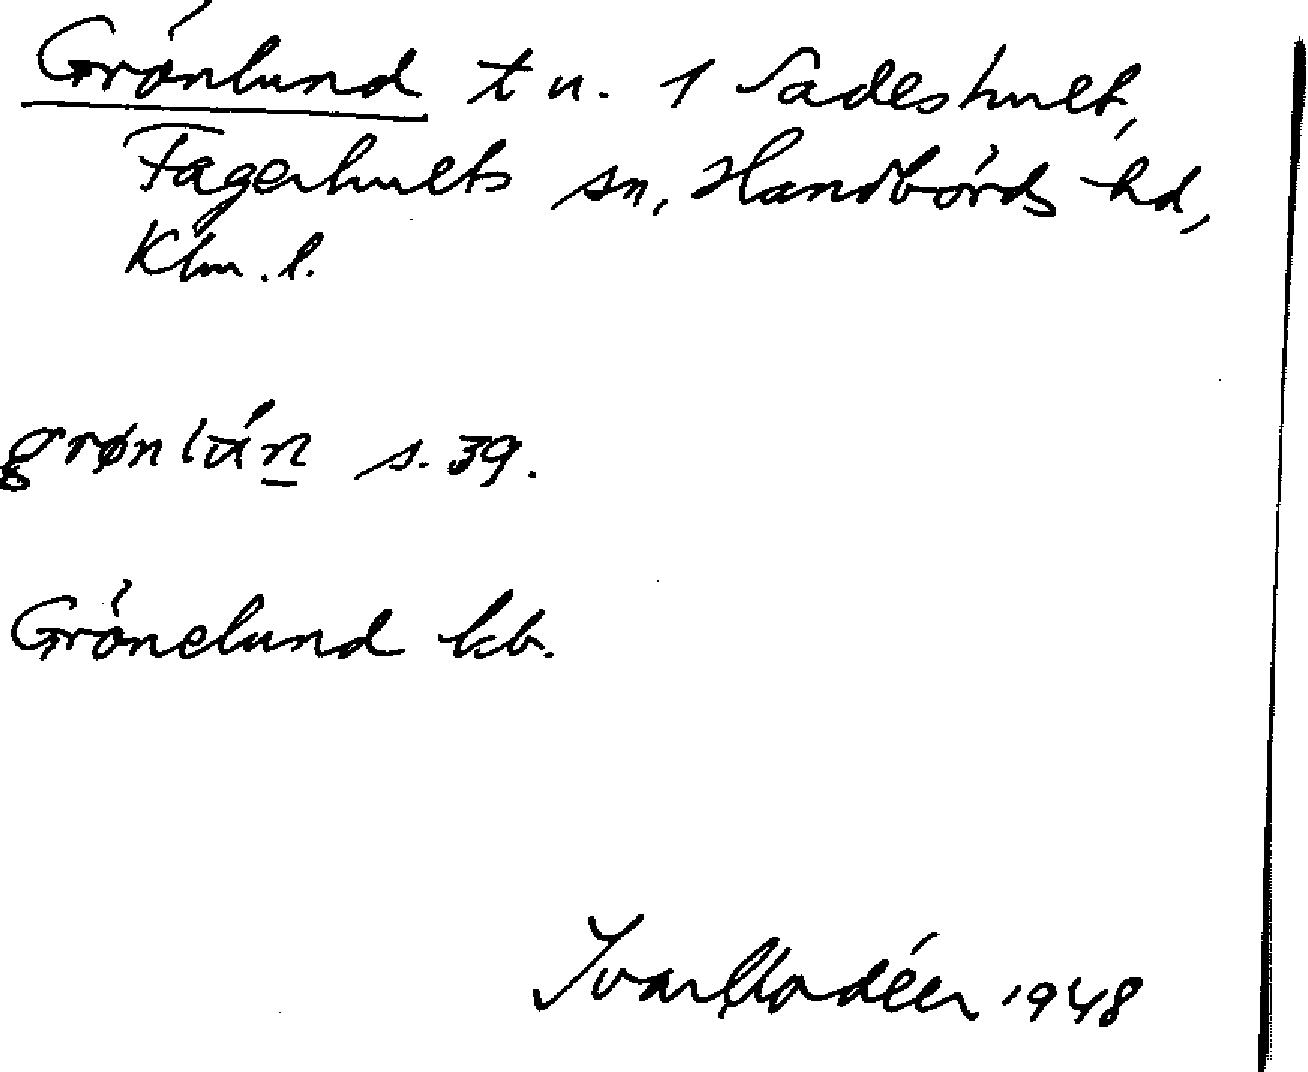 Grönlund t u. 1 Sadeshult,
Fagerhults sn, Handbörds hd,
Klm. l.
s. 39.
Grönelund kb.
Ivar Modéer 1948